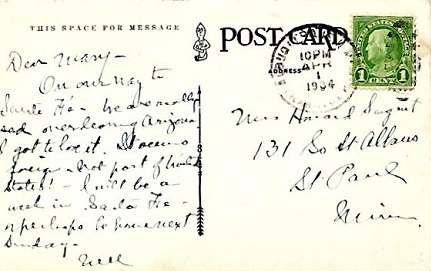 THIS SPACE FOR MESSAGE
POST CARD
ADDRESS
10 PM
APR
1
1934
UNITED STATES POSTAGE
1 CENT 1
Dear Mary -
On our way to
Santa Fe - we are really
sad over leaving Arizona
I got to love it. It seems
foreign - not part of United
States! - I will be a
week in Santa Fe -
perhaps be home next
Sunday -
Nell
Miss Howard Sargent
131 So St Albans
St Paul
Minn